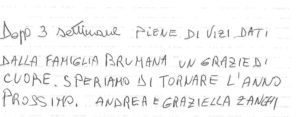 Dopo 3 settimane PIENE DI VIZI DATI
DALLA FAMIGLIA BRUMANA UN GRAZIE DI
CUORE. SPERIAMO DI TORNARE L'ANNO
PROSSIMO. ANDREA E GRAZIELLA ZANGHI